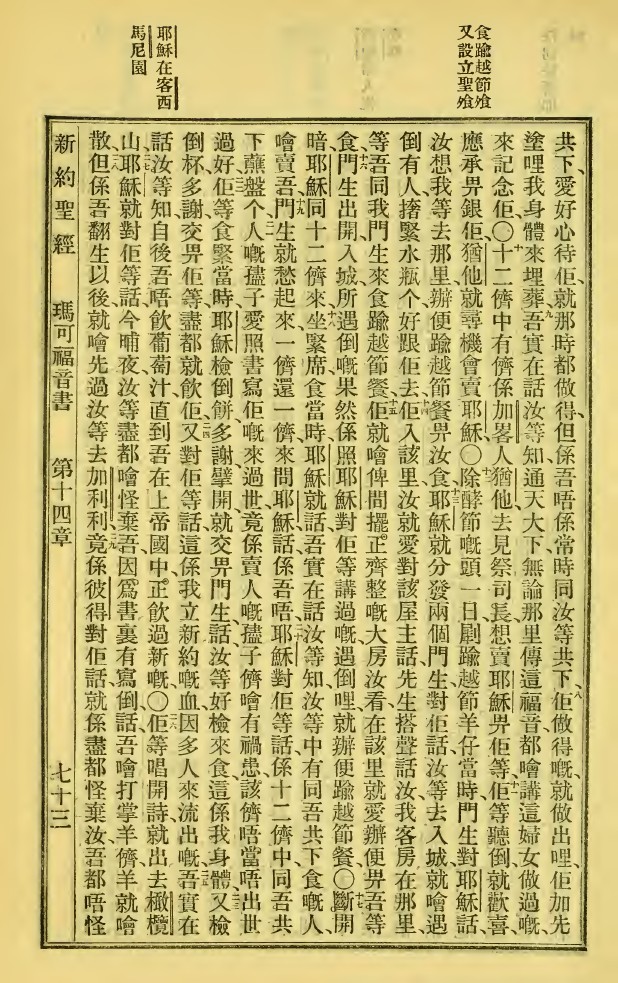 食踰越節飱
又設立聖飱
耶穌在客西
馬尼園
共下、愛好心待佢、就那時都做得、但係吾唔係常時同汝等共下、八佢做得嘅、就做出哩、佢加先
塗哩我身體來埋葬、九吾實在話汝等知、通天大下無論那里傳這福音、都噲講這婦女做過嘅、
來記念佢、〇十十二儕中有儕係加畧人猶他、去見祭司長、想賣耶穌畀佢等、十一佢等聽倒、就歡喜、
應承畀銀佢、猶他就尋機會賣耶穌、〇十二除酵節嘅頭一日、劏踰越節羊仔當時、門生對耶穌話、
汝想我等去那里、辦便踰越節餐畀汝食、十三耶穌就分發兩個門生、對佢話、汝等去入城、就噲遇
倒有人捨緊水瓶、个好跟佢去、十四佢入該里、汝就愛對該屋主話、先生搭聲話汝、我客房在那里、
等吾同我門生來食踰越節餐、十五佢就噲俾間擺正齊整嘅大房汝看、在該里就愛辦便畀吾等
食、十六門生出開入城、所遇倒嘅、果然係照耶穌對佢等講過嘅、遇倒哩、就辦便踰越節餐、〇十七斷開
暗、耶穌同十二儕來、十八坐緊席食當時、耶穌就話、吾實在話汝等知、汝等中有同吾共下食嘅人、
噲賣吾、十九門生就愁起來、一儕還一儕來問耶穌話、係吾唔、二十耶穌對佢等話、係十二儕中、同吾共
下蘸盤个、二一人嘅孻子、愛照書寫佢嘅來過世、竟係賣人嘅孻子儕、噲有禍患、該儕唔當唔出世
過好、二二佢等食緊當時、耶穌檢倒餅、多謝、擘開、就交畀門生、話汝等好檢來食、這係我身體、二三又檢
倒杯、多謝、交畀佢等、盡都就飲、二四佢又對佢等話、這係我立新約嘅血、因多人來流出嘅、二五吾實在
話汝等知、自後吾唔飲葡萄汁、直到吾在上帝國中、正飲過新嘅、〇二六佢等唱開詩、就出去橄欖
山、二七耶穌就對佢等話、今晡夜汝等盡都噲怪棄吾、因爲書裏有寫倒話、吾噲打掌羊儕、羊就噲
散、二八但係吾翻生以後、就噲先過汝等去加利利、二九竟係彼得對佢話、就係盡都怪棄汝、吾都唔怪
新約聖經 瑪可福音書 第十四章 七十三